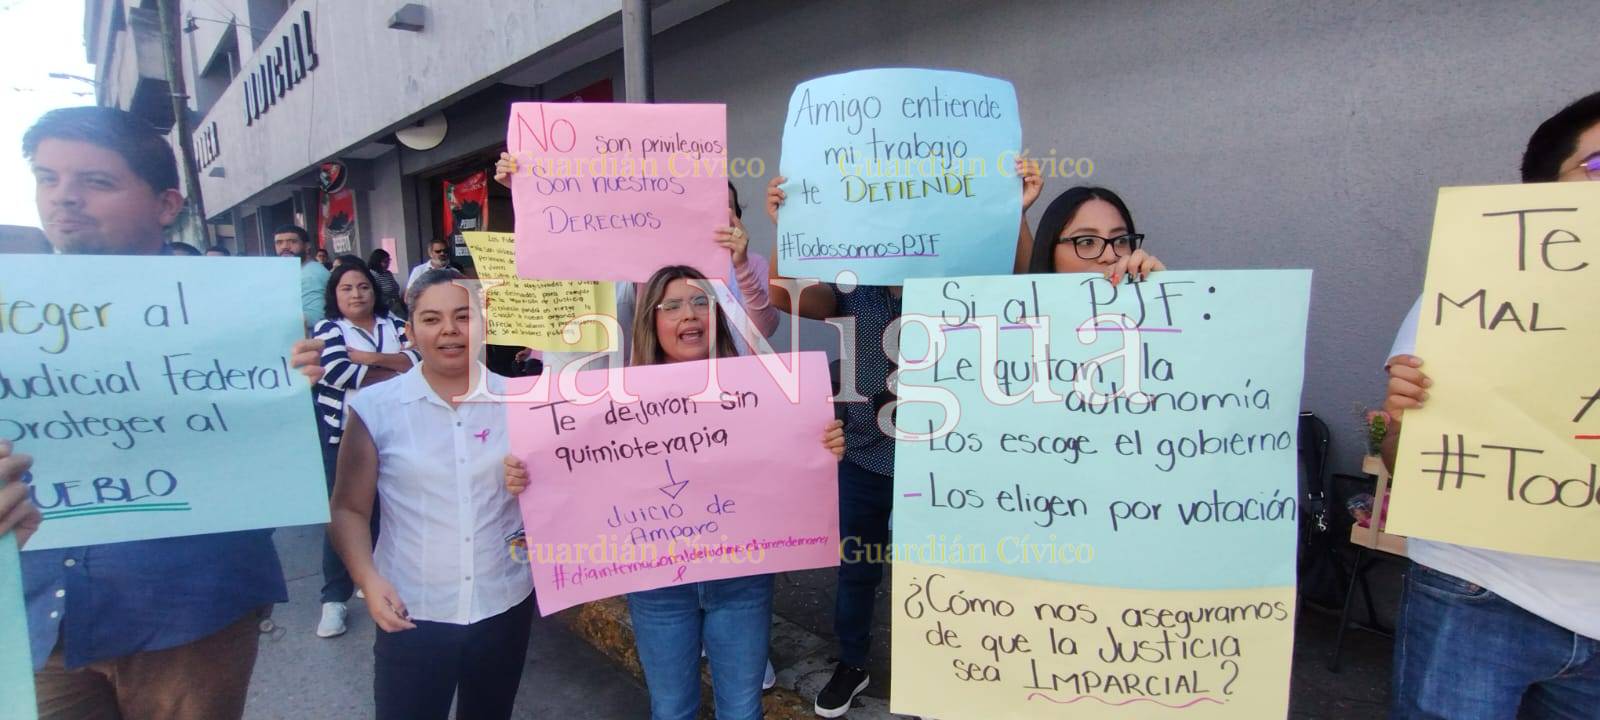 PODER JUDICIAL
NO son privilegios
Son nuestros
DERECHOS
Amigo entiende
mi trabajo
te DEFIENDE
#TodossomosPJF
teger al
Judicial Federal
proteger al
PUEBLO
Te dejaron sin
quimioterapia
Juicio de
Amparo
Si al PJF:
-Le quitan la
autonomía
-Los escoge el gobierno
-Los eligen por votación
¿Cómo nos aseguramos
de que la Justicia
sea IMPARCIAL?
Te
MAL
#Todo
La Nigua
Guardián Cívico
Guardián Cívico
Guardián Cívico
Guardián Cívico